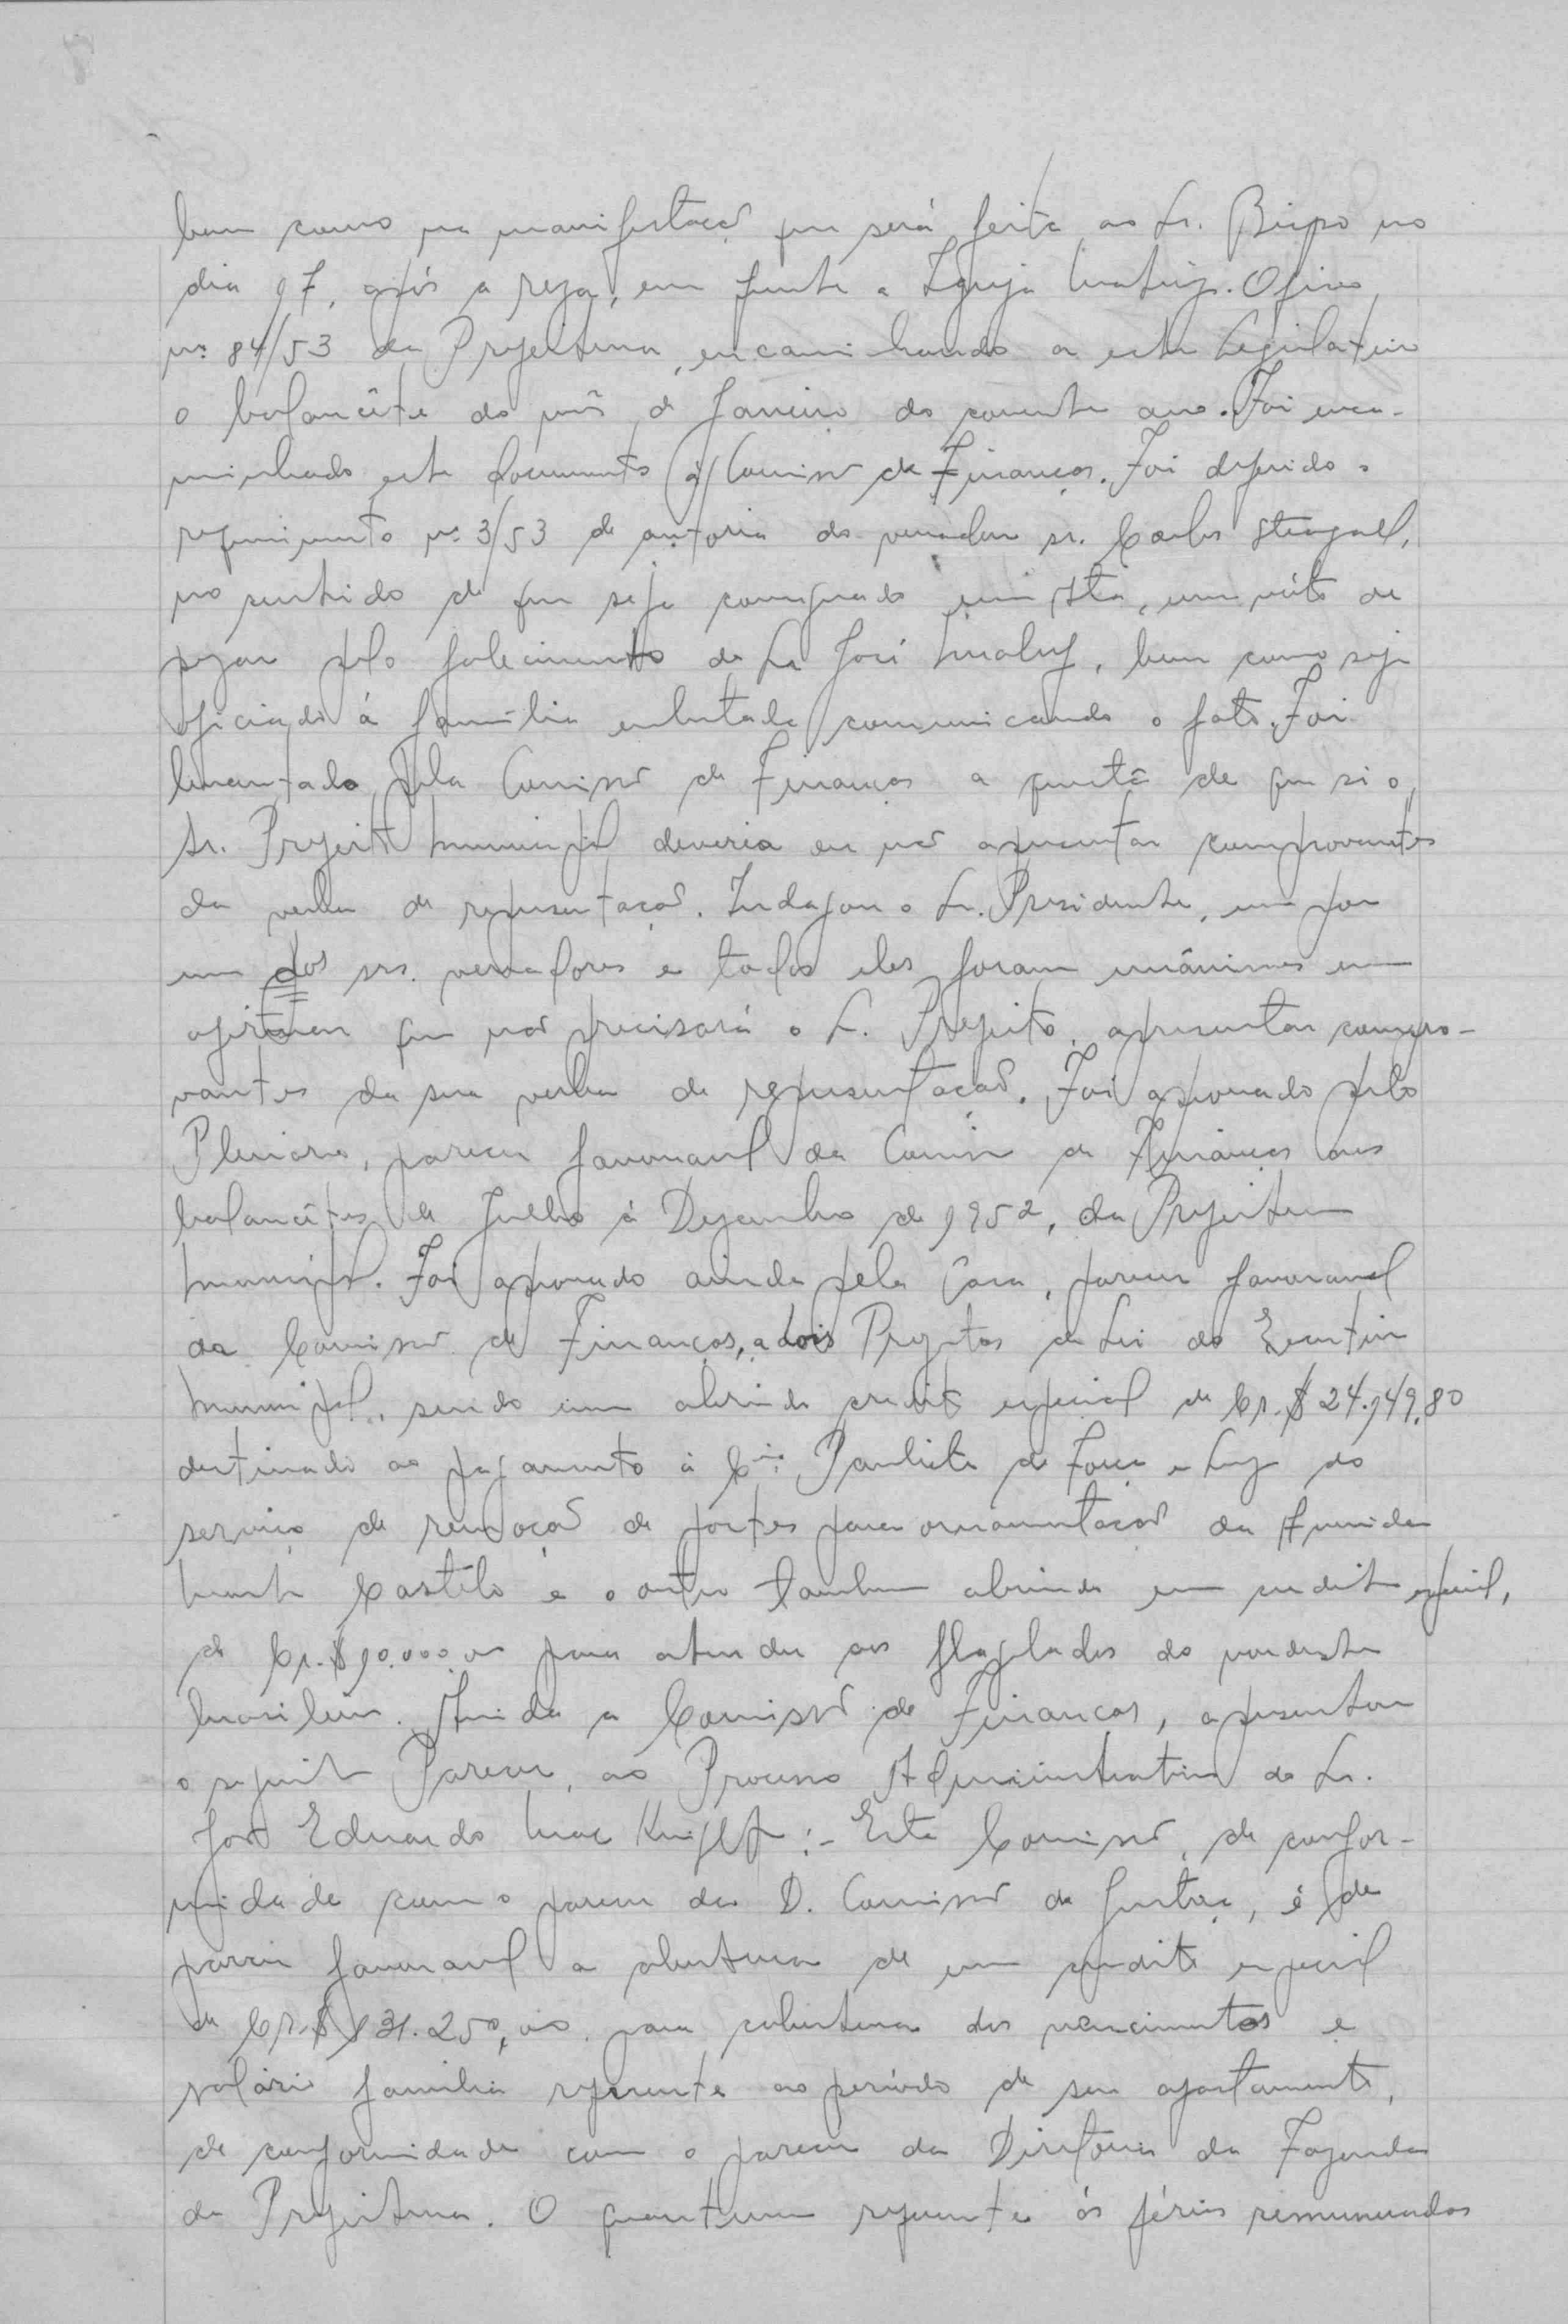 bem como na manifestação que será feita ao Sr. Bispo no
dia 17, após a reza, em frente a Igreja Matriz. Oficio
nº 84/53 da Prefeitura, encaminhando a este Legislativo
o balancête do mês de Janeiro do corrente ano. Foi enca-
minhado este documento à Comissão de Finanças. Foi deferido o
requerimento nº 3/53 de autoria do vereador sr. Carlos
no sentido de que seja consignado em Ata, um vóto de
pezar pelo falecimento do Sr José Maluf, bem como seja
oficiado á família enlutada comunicando o fato. Foi
levantado pela Comissão de Finanças a questão de que si o
Sr. Prefeito Municipal deveria ou não apresentar comprovantes
da verba de representação. Indagou o Sr. Presidente, um por
um dos srs. vereadores e todos eles foram unânimes em
afirmar que não precisará o Sr. Prefeito apresentar compro-
vantes da sua verba de representação. Foi aprovado pelo
Plenário, parecer favoravel da Comissão de Finanças aos
balancêtes de Julho á Dezembro de 1952, da Prefeitura
Municipal. Foi aprovado ainda pela Casa, parecer favoravel
da Comissão de Finanças, a dois Projetos de Lei do Executivo
Municipal, sendo um abrindo credito especial de Cr.$ 24.949,80
destinado ao pagamento á Cia. Paulista de Força e Luz do
serviço de remoção de postes para ornamentação da Avenida
Monte Castélo e o outro tambem abrindo um credito especial,
de Cr.$ 10.000,00 para atender aos flagelados do nordeste
brasileiro. Ainda a Comissão de Finanças, apresentou
o seguinte Parecer, ao Processo Administrativo do Sr.
José Eduardo Mac Knight :- Esta Comissão, de confor-
midade com o parecer da D. Comissão de Justiça, é de
parecer favoravel a abertura de um credito especial
de Cr.$ 131.250,00 para cobertura dos vencimentos e
salário familia referente ao período de seu afastamento,
de conformidade com o parecer da Diretoria da Fazenda
da Prefeitura. O quantum referente ás férias remuneradas